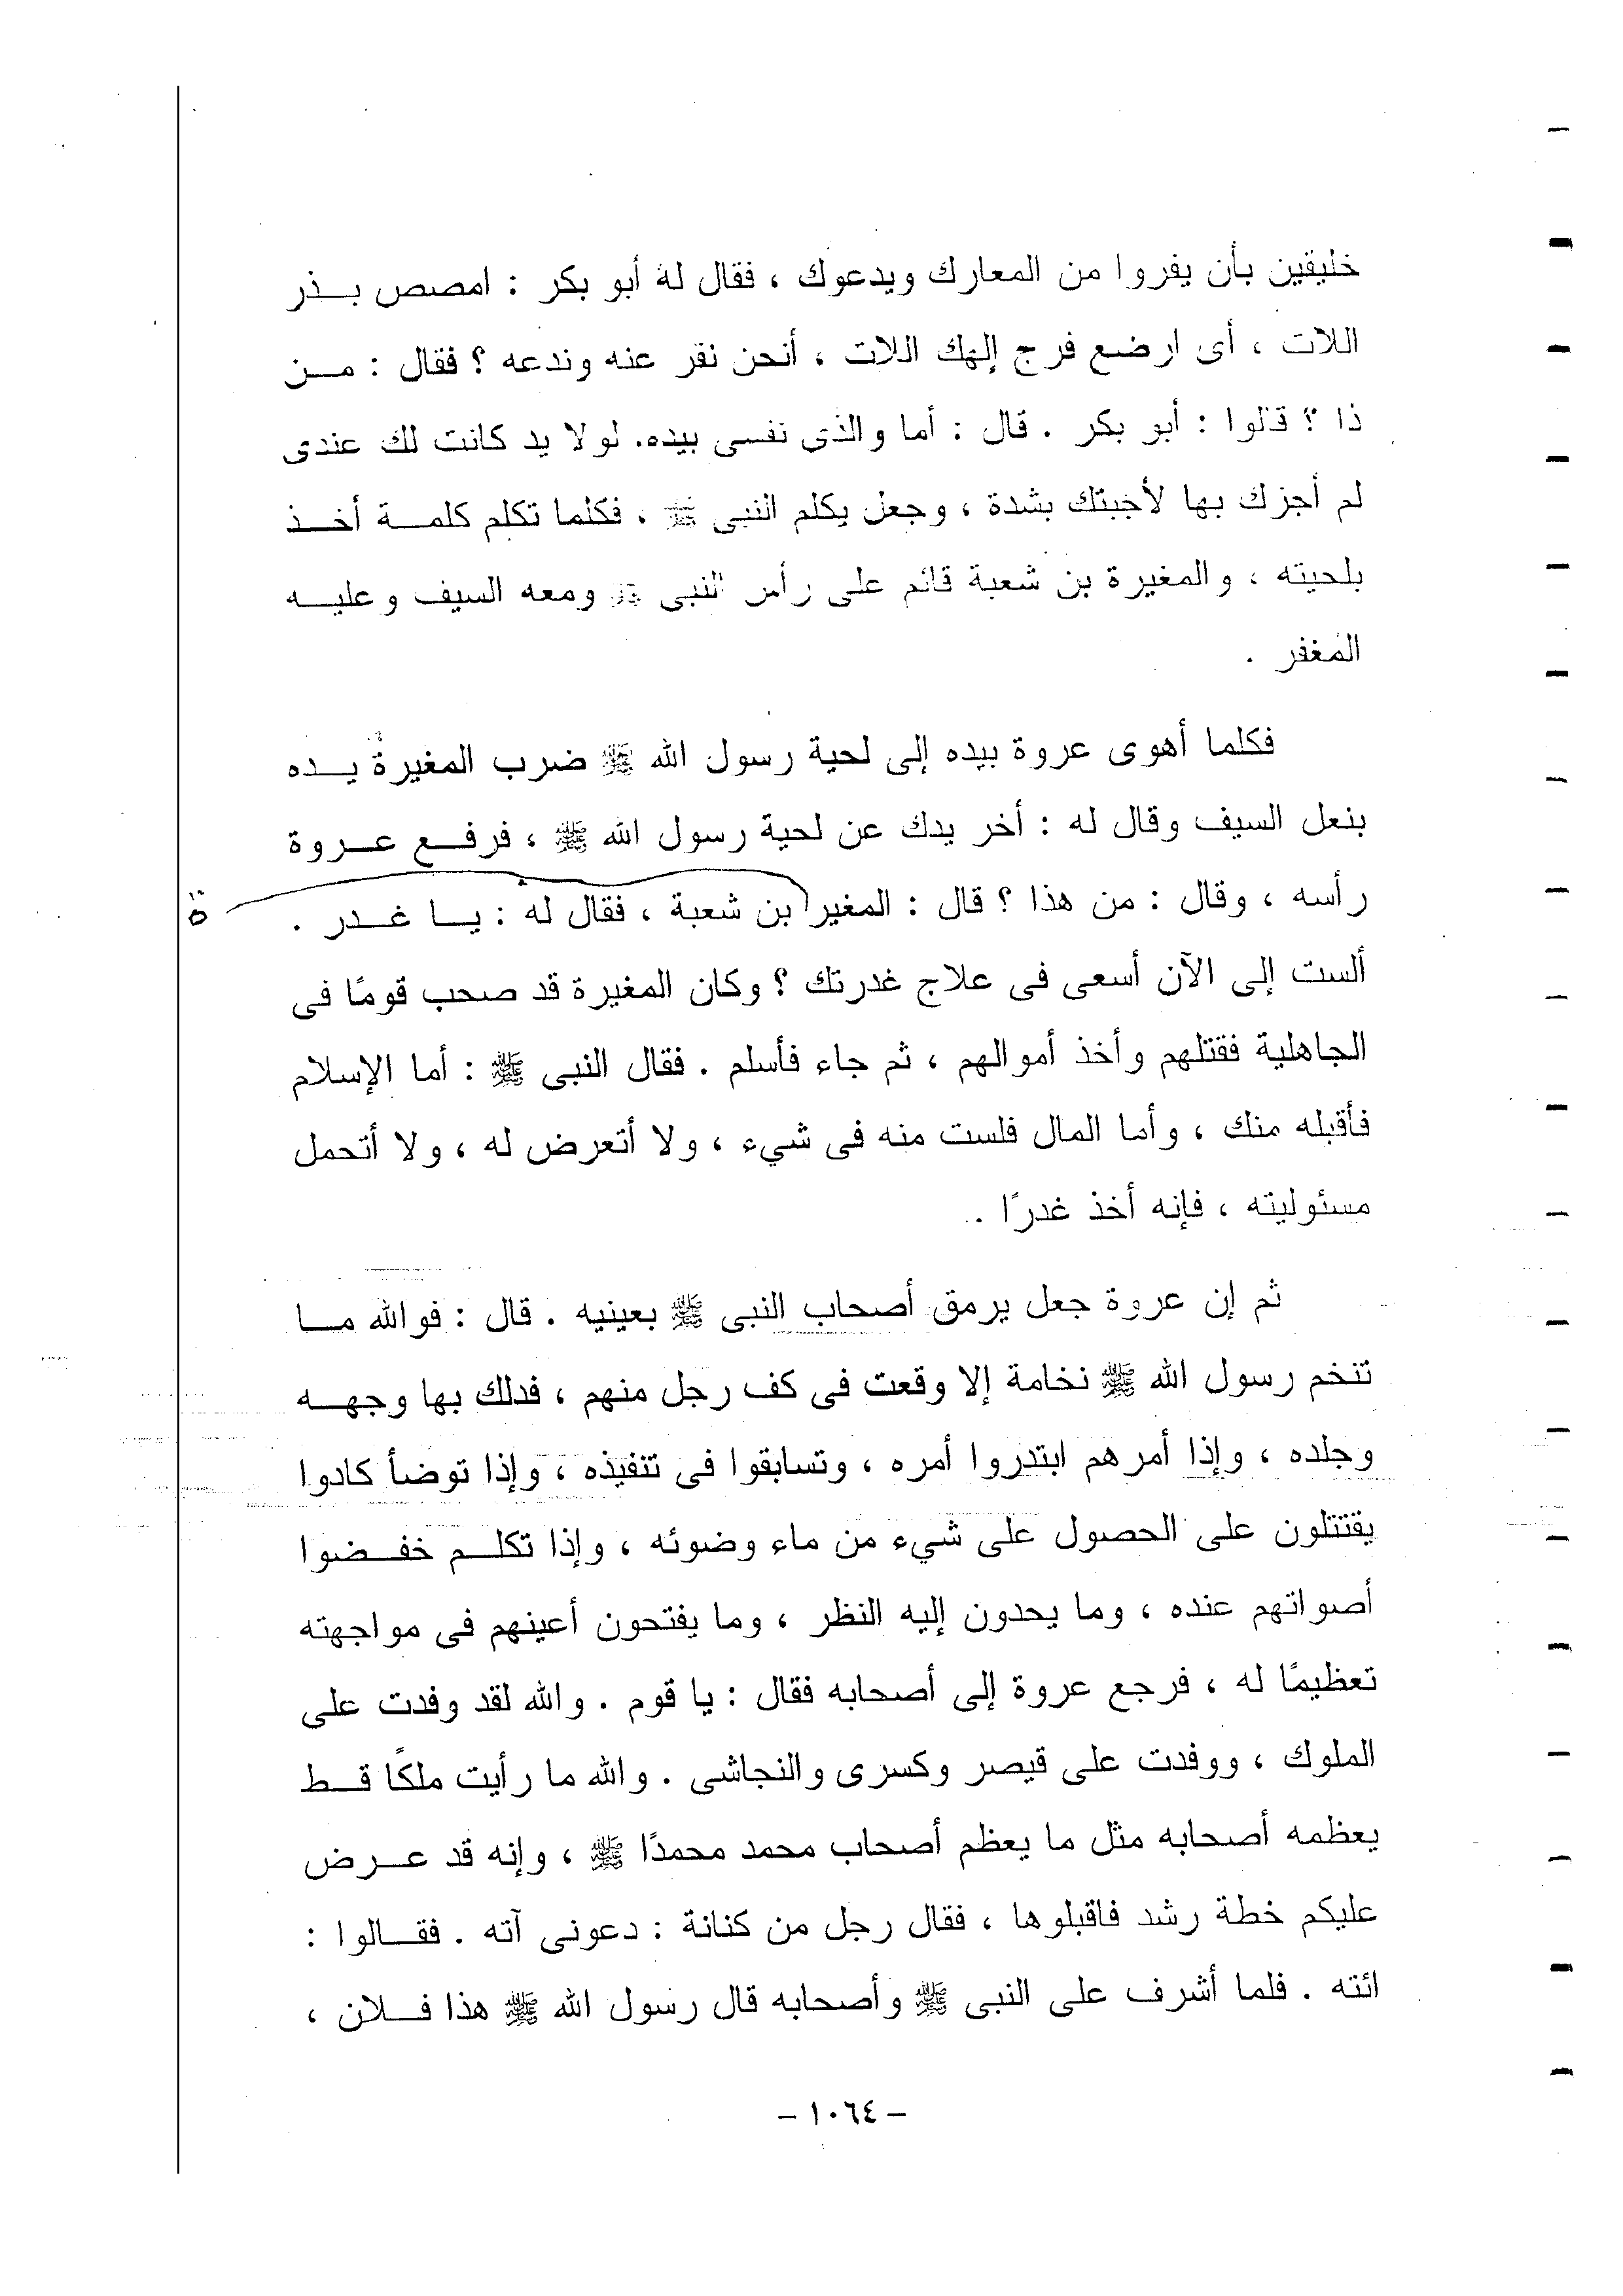 خليقين بأن يفروا من المعارك ويدعوك ، فقال له أبو بكر : امصص بـذر
اللات ، أى ارضع فرج إلهك اللات ، أنحن نفر عنه وندعه ؟ فقال : مـن
ذا ؟ قالوا : أبو بكر . قال : أما والذى نفسى بيده. لولا يد كانت لك عندى
لم أجزك بها لأجبتك بشدة ، وجعل يكلم النبى ﷺ ، فكلما تكلم كلمـة أخـذ
بلحيته ، والمغيرة بن شعبة قائم على رأس النبى ﷺ ومعه السيف وعليـه
المغفر .
فكلما أهوى عروة بيده إلى لحية رسول الله ﷺ ضرب المغيرة يـده
بنعل السيف وقال له : أخر يدك عن لحية رسول الله ﷺ ، فرفـع عـروة
رأسه ، وقال : من هذا ؟ قال : المغير بن شعبة ، فقال له : يـا غـدر .
ة
ألست إلى الآن أسعى فى علاج غدرتك ؟ وكان المغيرة قد صحب قومًا فى
الجاهلية فقتلهم وأخذ أموالهم ، ثم جاء فأسلم . فقال النبى ﷺ : أما الإسلام
فأقبله منك ، وأما المال فلست منه فى شيء ، ولا أتعرض له ، ولا أتحمل
مسئوليته ، فإنه أخذ غدرًا .
ثم إن عروة جعل يرمق أصحاب النبى ﷺ بعينيه . قال : فوالله مـا
تنخم رسول الله ﷺ نخامة إلا وقعت فى كف رجل منهم ، فدلك بها وجهـه
وجلده ، وإذا أمرهم ابتدروا أمره ، وتسابقوا فى تنفيذه ، وإذا توضأ كادوا
يقتتلون على الحصول على شيء من ماء وضوئه ، وإذا تكلـم خفـضوا
أصواتهم عنده ، وما يحدون إليه النظر ، وما يفتحون أعينهم فى مواجهته
تعظيمًا له ، فرجع عروة إلى أصحابه فقال : يا قوم . والله لقد وفدت على
الملوك ، ووفدت على قيصر وكسرى والنجاشى . والله ما رأيت ملكًا قـط
يعظمه أصحابه مثل ما يعظم أصحاب محمد محمدًا ﷺ ، وإنه قد عـرض
عليكم خطة رشد فاقبلوها ، فقال رجل من كنانة : دعونى آته . فقـالوا :
ائته . فلما أشرف على النبى ﷺ وأصحابه قال رسول الله ﷺ هذا فـلان ،
- ١٠٦٤ -